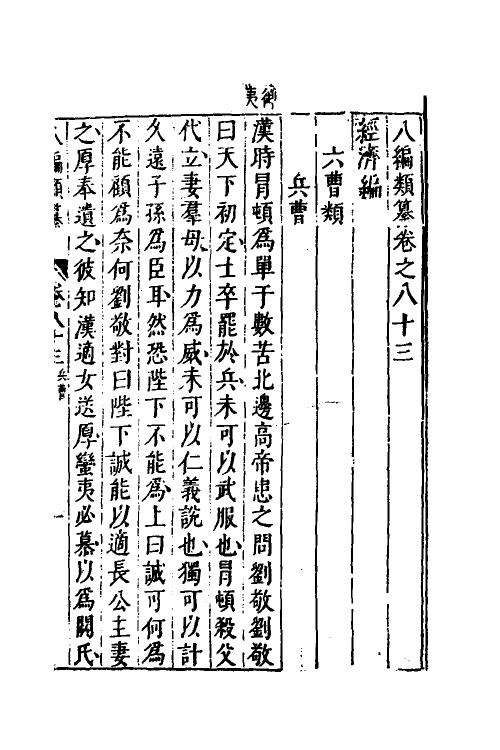 八編類纂卷之八十三
經濟編
六曹類
兵曹
禦夷
漢時冐頓爲單于數苦北邊高帝患之問劉敬劉敬
曰天下初定士卒罷於兵未可以武服也冐頓殺父
代立妻羣母以力爲威未可以仁義說也獨可以計
久遠子孫爲臣耳然恐陛下不能爲上曰誠可何爲
不能顧爲奈何劉敬對曰陛下誠能以適長公主妻
之厚奉遺之彼知漢適女送厚蠻夷必慕以爲閼氏
八編類纂 卷八十三 兵曹 一